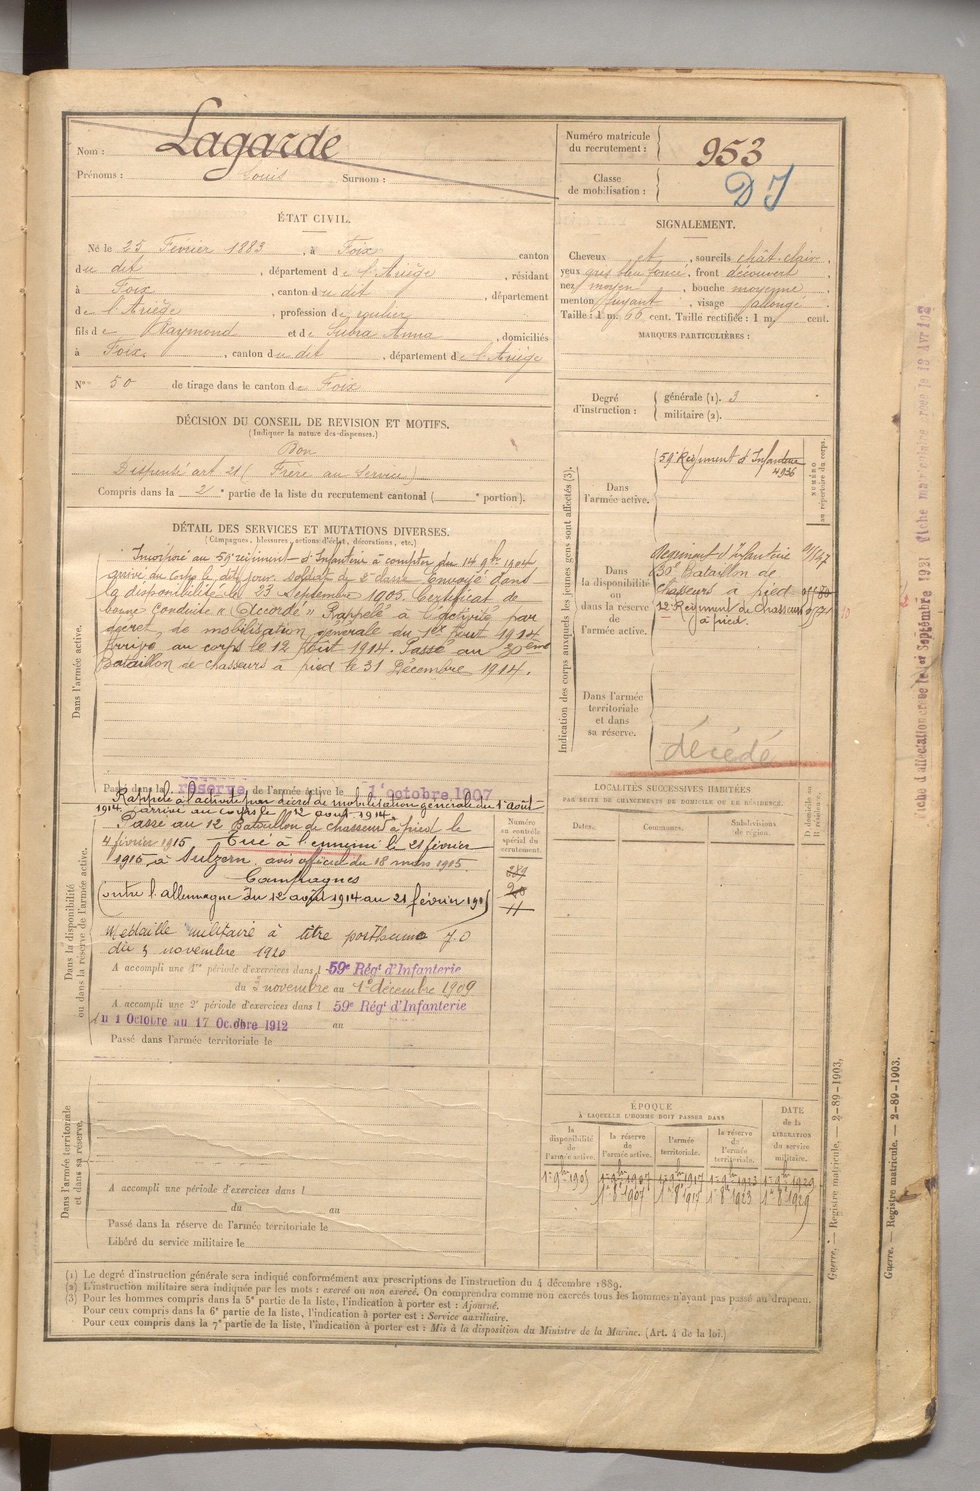 Nom : Lagarde
Prénoms : Louis Surnom :
Numéro matricule du recrutement : 953
Classe de mobilisation : D J
ÉTAT CIVIL.
Né le 25 Février 1883, à Foix canton
du dit, département de l'Ariège, résidant
à Foix, canton du dit, département
de l'Ariège, profession de roulier
fils de Raymond et de Subra Anna, domiciliés
à Foix, canton du dit, département de l'Ariège
N° 50 de tirage dans le canton de Foix
DÉCISION DU CONSEIL DE REVISION ET MOTIFS.
(Indiquer la nature des dispenses.)
Bon
Dispensé art 21 (Frère au Service)
Compris dans la 2e partie de la liste du recrutement cantonal ( e portion).
SIGNALEMENT.
Cheveux et, sourcils chât-clair,
yeux gris bleu foncé, front découvert
nez moyen, bouche moyenne
menton fuyant, visage allongé
Taille : 1 m. 66 cent. Taille rectifiée : 1 m. cent.
MARQUES PARTICULIÈRES :
Degré d'instruction :
générale (1). 3
militaire (2).
DÉTAIL DES SERVICES ET MUTATIONS DIVERSES.
(Campagnes, blessures, actions d'éclat, décorations, etc.)
Dans l'armée active.
Incorporé au 59e régiment d'Infanterie à compter du 14 9bre 1904
arrivé au corps le dit jour. Soldat de 2e classe. Envoyé dans
la disponibilité le 23 Septembre 1905. Certificat de
bonne conduite « Accordé » Rappelé à l'activité par
décret de mobilisation générale du 1er Août 1914
Arrivé au corps le 12 Août 1914. Passé au 30ème
Bataillon de chasseurs à pied le 31 Décembre 1914.
Passé dans la réserve de l'armée active le 1 octobre 1907
Dans la disponibilité ou dans la réserve de l'armée active.
Rappelé à l'activité par décret de mobilisation générale du 1 août
1914 arrivé au corps le 12 août 1914
Passé au 12 Bataillon de chasseurs à pied le
4 février 1915 Tué à l'ennemi le 21 février
1915 à Sulzern avis officiel du 18 mars 1915.
Campagnes
Contre l'allemagne du 12 août 1914 au 21 février 1915
Médaille militaire à titre posthume J.O
du 3 novembre 1920
A accompli une 1re période d'exercices dans l 59e Régt d'Infanterie
du 3 novembre au 1er décembre 1909
A accompli une 2e période d'exercices dans l 59e Régt d'Infanterie
du 1 Octobre au 17 Octobre 1912 au
Passé dans l'armée territoriale le
Numéro au contrôle spécial du recrutement.
Dans l'armée territoriale et dans sa réserve.
A accompli une période d'exercices dans l
du au
Passé dans la réserve de l'armée territoriale le
Libéré du service militaire le
Indication des corps auxquels les jeunes gens sont affectés (3).
Dans l'armée active.
59e Régiment d'Infanterie
4936
NUMÉRO au répertoire du corps.
Dans la disponibilité ou dans la réserve de l'armée active.
Régiment d'Infanterie
30e Bataillon de
Chasseurs à pied
12 Régiment de Chasseurs
à pied.
Dans l'armée territoriale et dans sa réserve.
décédé
LOCALITÉS SUCCESSIVES HABITÉES
PAR SUITE DE CHANGEMENTS DE DOMICILE OU DE RÉSIDENCE.
Dates. Communes. Subdivisions de région. D domicile ou R résidence.
ÉPOQUE
À LAQUELLE L'HOMME DOIT PASSER DANS
la disponibilité de l'armée active.
la réserve de l'armée active.
l'armée territoriale.
la réserve de l'armée territoriale.
DATE de la LIBÉRATION du service militaire.
1er 9bre 1905 1er 9bre 1907 1er 9bre 1917 1er 9bre 1923 1er 9bre 1929
1er 8bre 1907 1er 8bre 1917 1er 8bre 1923 1er 8bre 1929
(1) Le degré d'instruction générale sera indiqué conformément aux prescriptions de l'instruction du 4 décembre 1889.
(2) L'instruction militaire sera indiquée par les mots : exercé ou non exercé. On comprendra comme non exercés tous les hommes n'ayant pas passé au drapeau.
(3) Pour les hommes compris dans la 5e partie de la liste, l'indication à porter est : Ajourné.
Pour ceux compris dans la 6e partie de la liste, l'indication à porter est : Service auxiliaire.
Pour ceux compris dans la 7e partie de la liste, l'indication à porter est : Mis à la disposition du Ministre de la Marine. (Art. 4 de la loi.)
Guerre. — Registre matricule. — 2-89-1903.
Guerre. — Registre matricule. — 2-89-1903.